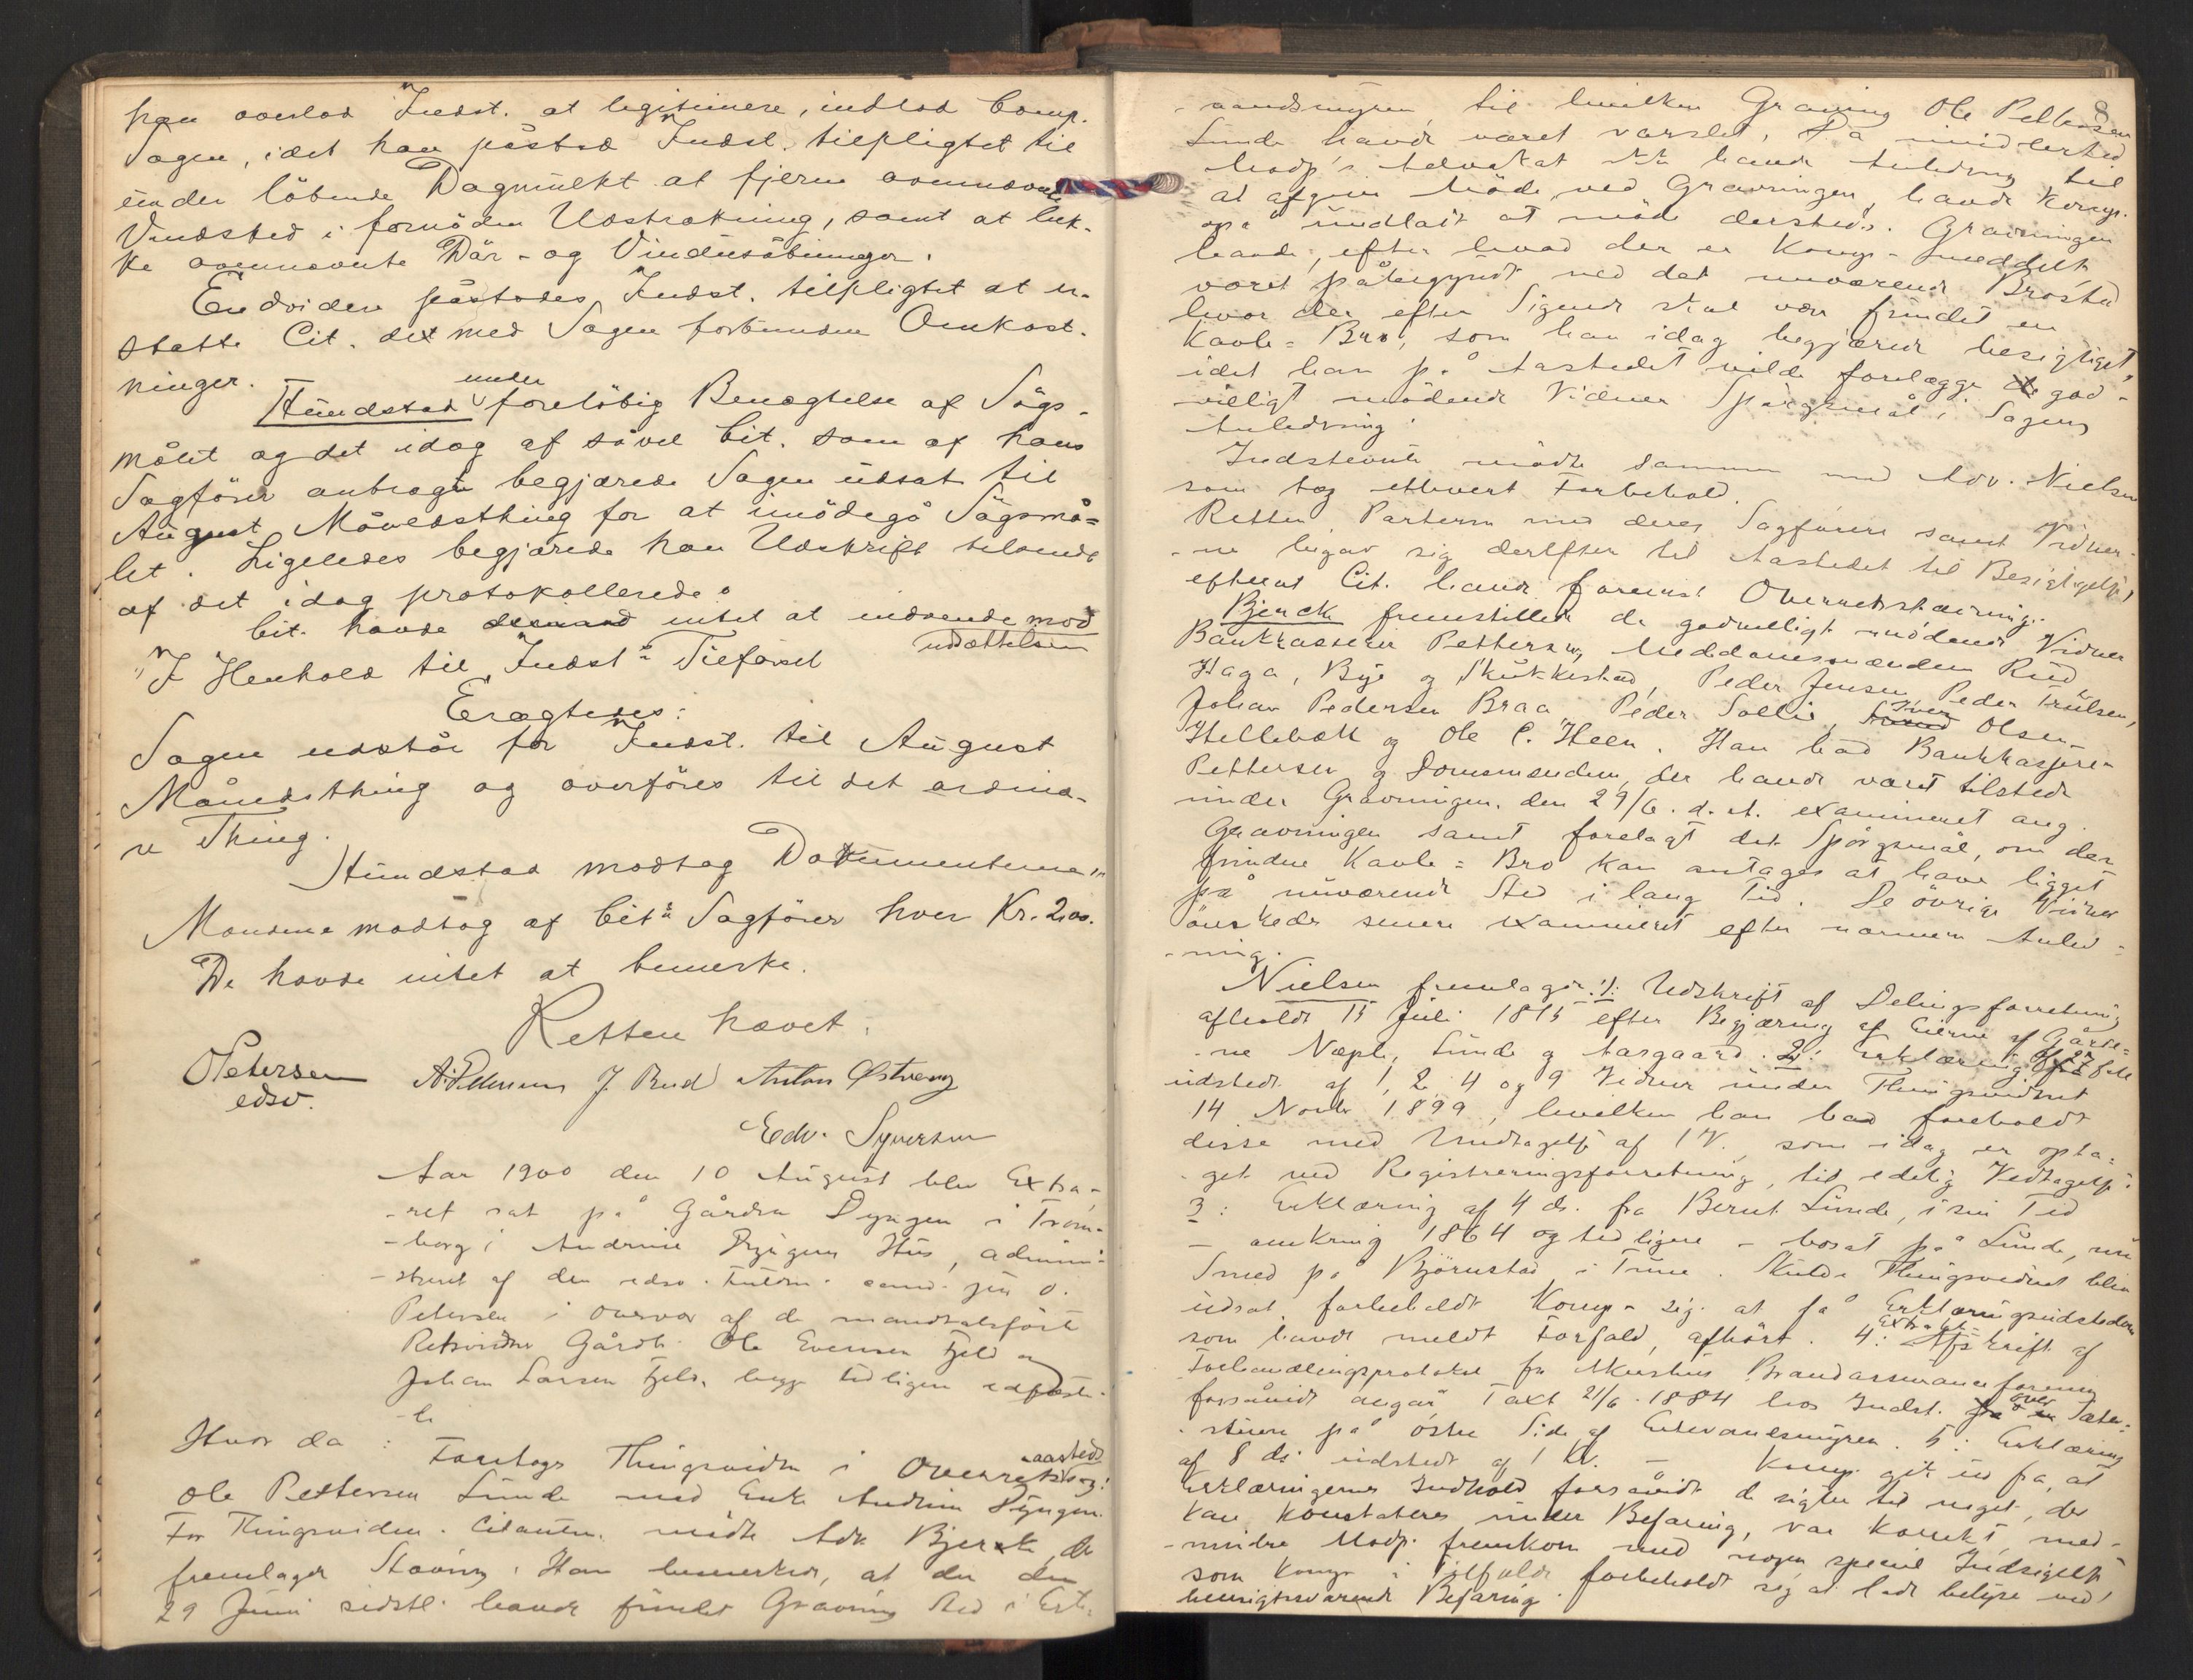 han overlod Indst. at legitimere, indlod Comp.
Sagen, idet han påstod Indst. tilpligtet til
under löbende Dagmulkt at fjerne ovennævnte
Vindsted i fornöden Udstrækning, samt at luk-
ke ovennævnte Dör- og Vinduesåbninger.
Endvidere påstodes Indst. tilpligtet at er-
statte Cit. det med Sagen forbundne Omkost-
ninger.
Hundstad under foreløbig Benægtelse af Sögs-
målet og det idag af såvel Cit. som af hans
Sagförer anbragte begjærede Sagen udsat til
August Månedsthing for at imödegå Sögsmå-
let. Ligeledes begjærede han Udskrift tilsendt
af det idag protokollerede.
Cit. havde intet at indvende mod
udsættelsen
"I Henhold til Indst.s Tilförsel
Eragtedes:
Sagen udstår for Indst. til August
Månedsthing og overföres til det ordinæ-
re Thing.
Hundstad modtog Dokumenterne"
Mændene modtog af Cit.s Sagförer hver Kr. 2,00.
De havde intet at bemerke.
Retten hævet.
OPetersen
edsv.
A. Pettersen J. Rud Anton Østvang
Edv. Syversen
Aar 1900 den 10 August blev Extra-
ret sat på Gården Dyngen i Tröm-
borg i Andrine Dyngens Hus, admini-
streret af den edsv. Fuldm. cand. jur O.
Petersen i Overvær af de mandtalsförte
Retsvidner Gårdb. Ole Evensen Fjeld og
Johan Larsen Fjeld, begge tidligere edfæste-
de
Hvor da: Foretoges Thingsvidne i Overrets aasteds sag:
Ole Pettersen Lunde mod Enke Andrine Dyngen.
For Thingsviden. Citanten mödte Adv. Bjerck, der
fremlagde Stævning. Han bemerkede, at der den
29 Juni sidstl. havde fundet Gravning Sted i Ert-
8
-vandsmyren til hvilken Gravning Ole Pettersen
Lunde havde været varslet. Da imidlertid
Modp.s Advokat ikke havde Anledning til
at afgive Möde ved Gravningen, havde Komp.
også undladt at möde dersteds. Gravningen
havde, efter hvad der er Komp. meddelt
været påbegyndt ved det nuværende Brosted
hvor der efter Sigende skal være fundet en
Kavle-Bro, som han idag begjærede besigtiget,
idet han på Aastedet vilde forelægge de god-
villigt mödende Vidner Spörgsmål i Sagens
Anledning.
Indstevnte mödte sammen med Adv. Nielsen
som tog ethvert Forbehold.
Retten, Parterne med deres Sagförere samt Vidner-
-ne begav sig derefter til Aastedet til Besigtigelse,
efterat Cit. havde forevist Overretsstævning.
Bjerck fremstillede de godvilligt mödende Vidner
Bankkasserer Pettersen, Meddomsmændene Rud
Haga, Bye og Skukkestad, Peder Jensen, Peder Trulsen,
Johan Pedersen Braa, Peder Sollie, Iver Olsen
Hellebæk og Ole C. Heen. Han bad Bankkasserer
Pettersen og Domsmændene, der havde været tilstede
under Gravningen den 29/6 d. A. examineret ang.
Gravningen samt forelagt det Spörgsmål, om den
fundne Kavle-Bro kan antages at have ligget
på nuværende Sted i lang Tid. De övrige Vidner
önskedes senere examineret efter nærmere Anled-
-ning.
Nielsen fremlagde: 1: Udskrift af Delingsforretning
afholdt 13 Juli 1815 efter Begjæring af Eierne af Gårde-
-ne Næple, Lunde og Aasgaard. 2: Erklæring
udstedt af 1, 2 4 og 9 Vidner under Thingsvidnet
14 Novbr 1899, hvilken han bad foreholdt
disse med Undtagelse af 1 V., som idag er opta-
-get ved Registreringsforretning, til edelig Vedtagelse.
3: Erklæring af 4 ds. fra Bernt Lunde, i sin Tid
- omkring 1864 og tidligere - bosat på Lunde, nu
Smed på Björnstad i Tune. Skulde Thingsvidnet blive
udsat, forbeholdt Komp. sig at få Erklæringsudstederen
som havde meldt Forfald, afhört. 4: Extrakt Afskrift af
Forhandlingsprotokol for Akershus Brandassuranceforening
forsåvidt angår Taxt 21/6 1884 hos Indst. over Sæter-
-stuen på östre Side af Ertevandsmyren. 5: Erklæring
af 8 ds. udstedt af 1 V. - Komp. gik ud fra, at
Erklæringernes Indhold forsåvidt de sigter til noget, der
kan konstateres under Befaring, var korrekt, med-
-mindre Modp. fremkom med nogen speciel Indsigelse
som Komp. i Tilfælde forbeholdt sig at lade belyse ved
hensigtssvarende Befaring.